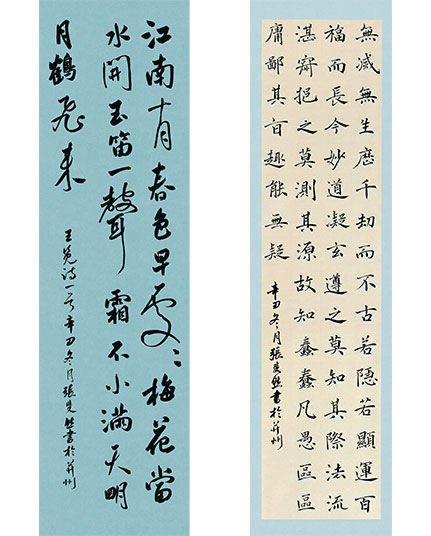 江南十月春色早處〻梅花當
水開玉笛一聲霜不小滿天明
月鶴飛來
王冕詩一首辛丑冬月張 書於并州
無滅無生歷千劫而不古若隱若顯運百
福而長今妙道凝玄遵之莫知其際法流
湛寂挹之莫測其源故知蠢蠢凡愚區區
庸鄙其旨趣能無疑
辛丑冬月張 書於并州